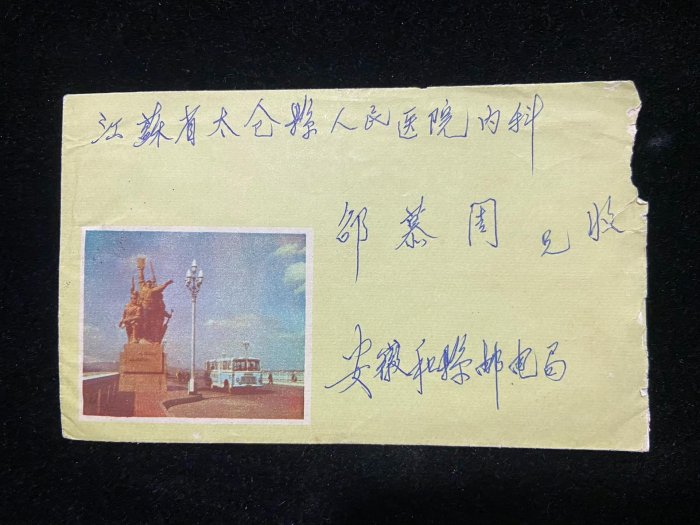 江蘇省太仓縣人民医院内科
邵慕周 兄收
安徽和縣邮电局